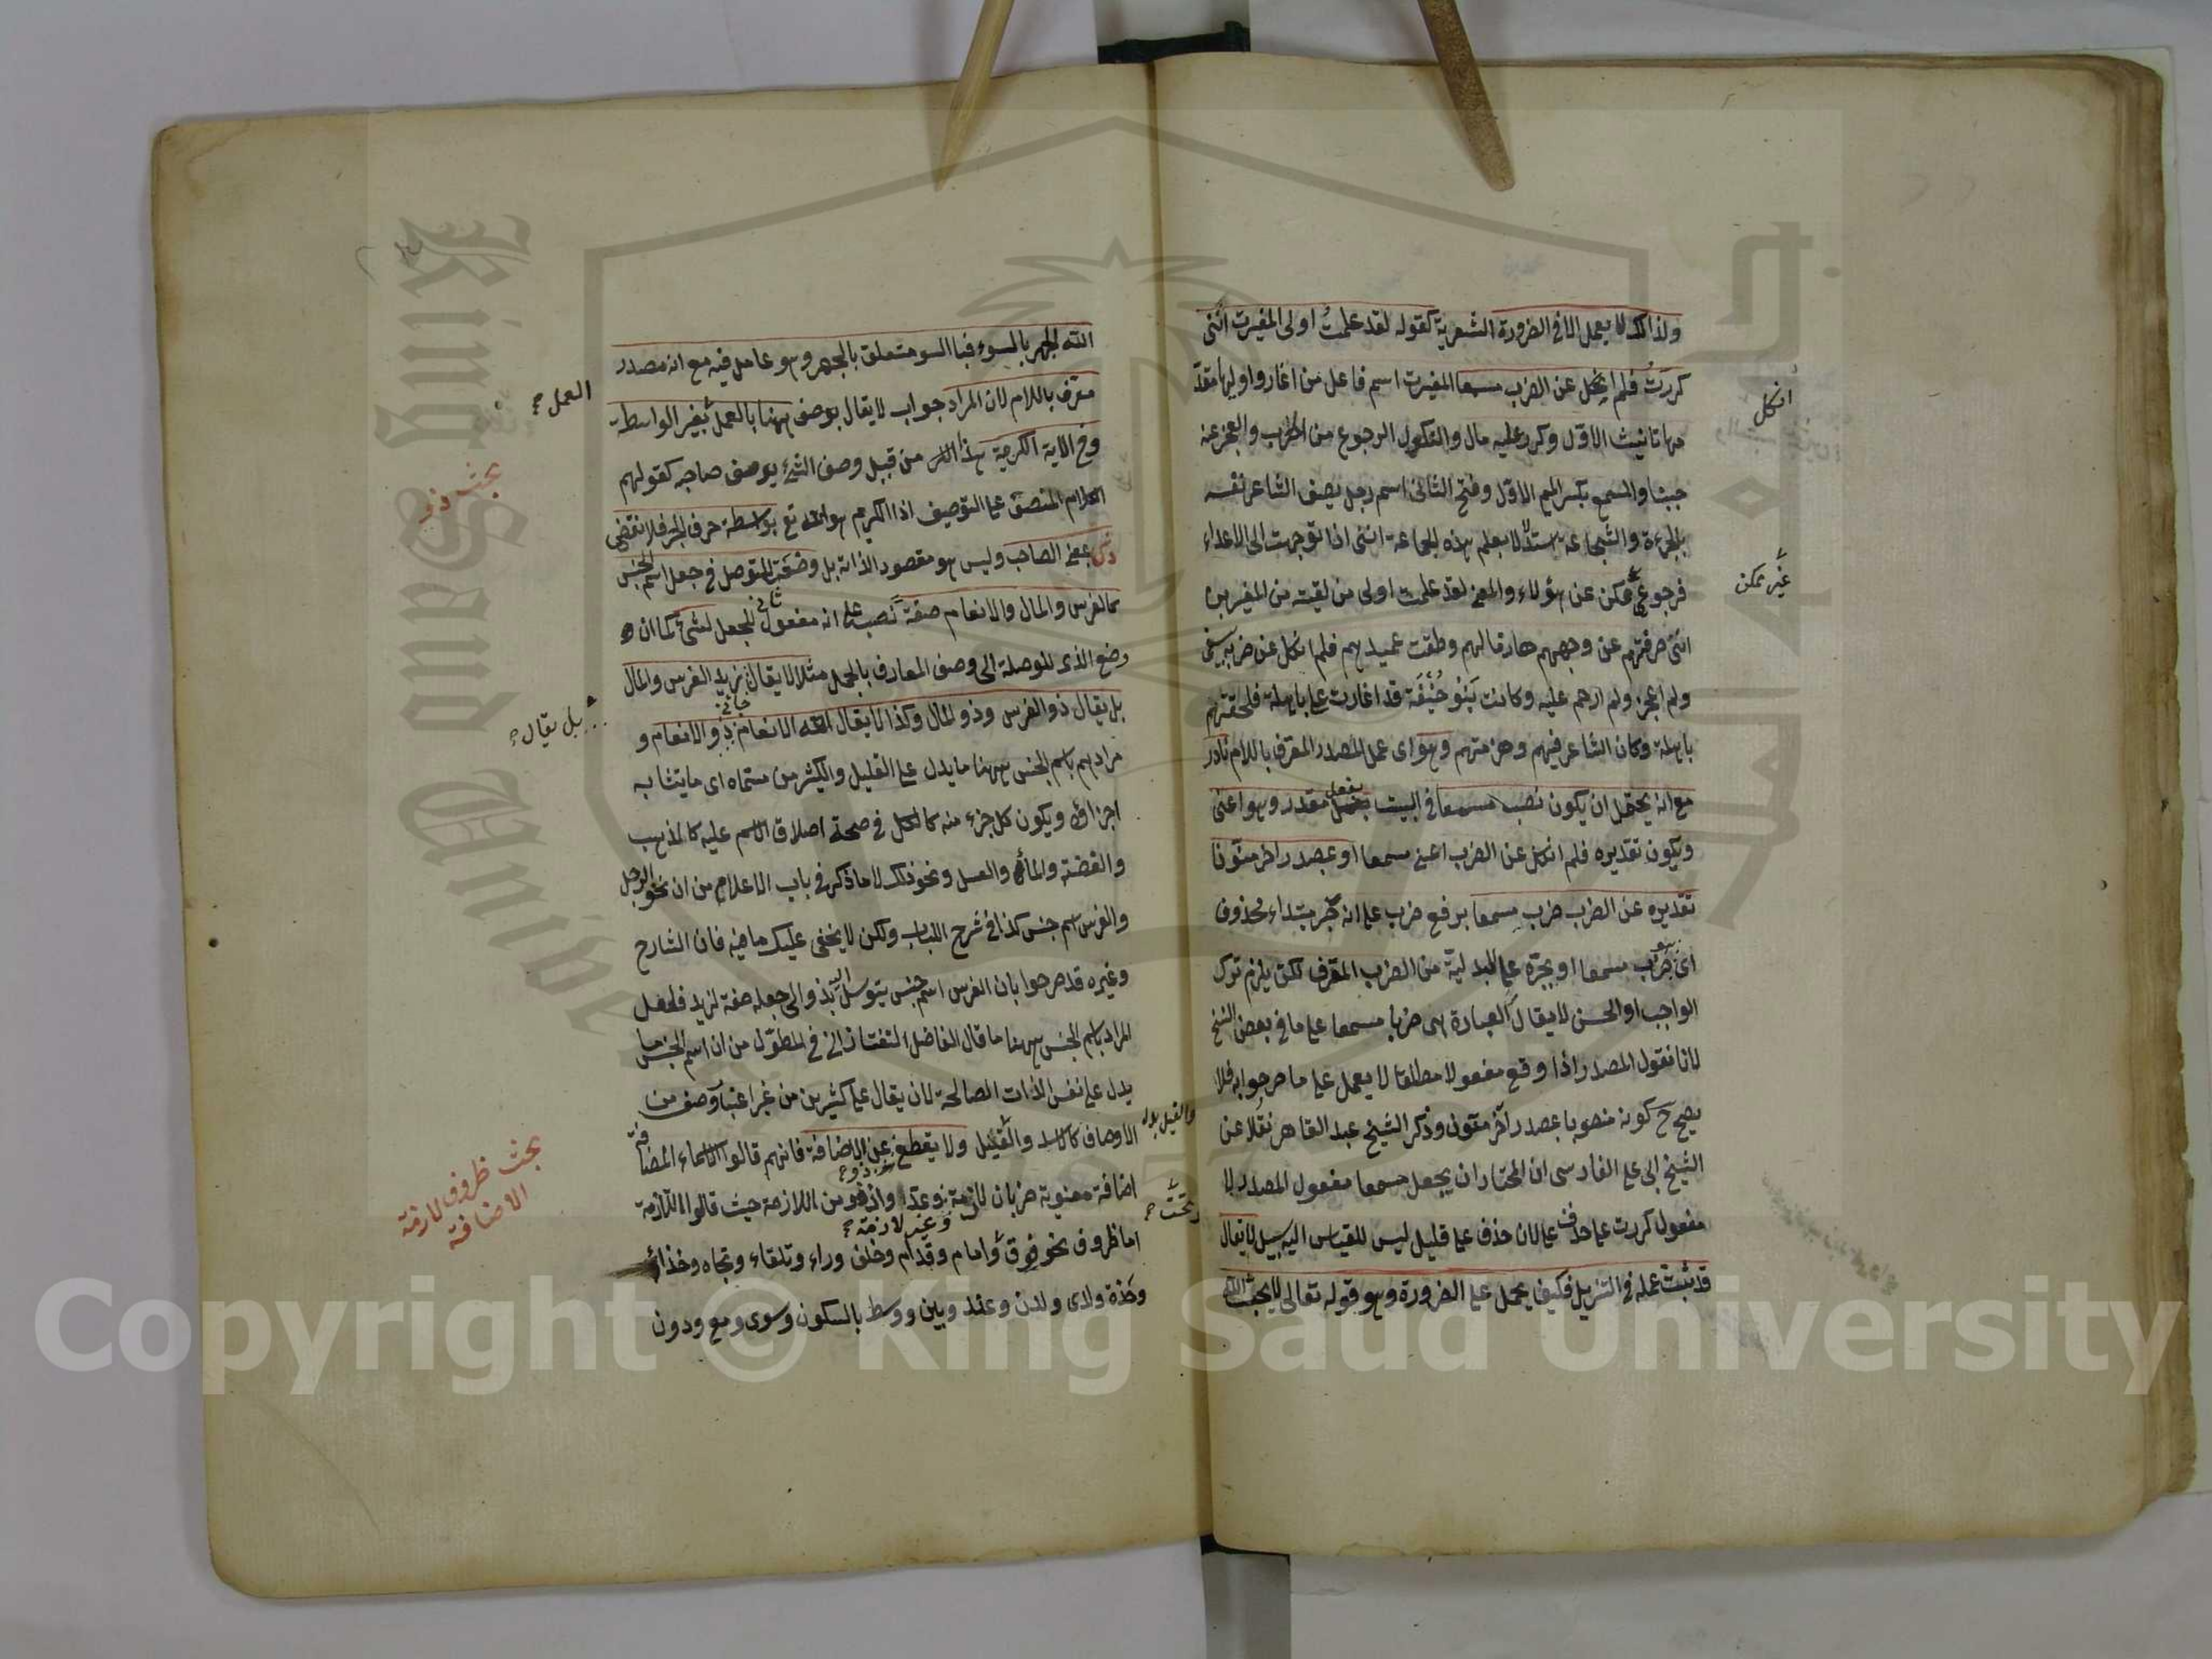 ولذالك لا يعمل الا في الضرورة الشعرية كقوله لقد علمتُ اولى المغيرت انّنى
كررتُ فلم انكل عن الضرب مسمعا المغيرت اسم فاعل من اغار واوليها مقدّ
مها تانيث الاوّل وكرر عليه مال والنكول الرجوع من الحرب والعجز عنه
جبنا والمسمع بكسر الميم الاوّل وفتح الثانى اسم رجل يصف الشاعر نفسه
بالجرءة والشجاعة مستدلا بعلم هذه الجماعة اننى اذا توجهت الى الاعداء
فرجوعى ممكن عن هؤلاء والمعنى لقد علمت اولى من لقيته من المغيرين
اننى صرفتهم عن وجههم هازما لهم وطفت عميدهم فلم انكل عن ضربه بسيفى
ولم اعجز ولم ارحم عليه وكانت بنو حُنيفَة قد اغارت على باهلة فلحقتهم
باهلة وكان الشاعر فيهم وهزمتهم وهو اى عمل المصدر المعرّف باللام نادر
مع انه يحتمل ان يكون نصب مسمعا في البيت بفعل مقدر وهو اعنى
ويكون تقديره فلم انكل عن الضرب اعنى مسمعا او بمصدر اخر منوّنا
تقديره عن الضرب ضرب مسمعا برفع ضرب على انه خبر مبتداء محذوف
اى هو ضرب مسمعا او بجرّه على البدلية من الضرب المعرّف لكن يلزم ترك
الواجب او الحسن لا يقال العبارة هى ضربا مسمعا على ما في بعض النسخ
لانا نقول المصدر اذا وقع مفعولا مطلقا لا يعمل على ما صرحوا به فلا
يصح ح كونه منصوبا بمصدر آخر منون وذكر الشيخ عبد القاهر نقلا عن
الشيخ ابى على الفارسى ان المختار ان يجعل مسمعا مفعول المصدر لا
مفعول كررت على حذف على لان حذف على قليل ليس للقياس اليه سبيل لا يقال
قد ثبت عمله في التنزيل فكيف يحمل على الضرورة وهو قوله تعالى لا يحب الله
انكل
غير ممكن
الله الجهر بالسوء فبالسوء متعلق بالجهر وهو عامل فيه مع انه مصدر
معرّف باللام لان المراد جواب لا يقال بوصف ههنا بالعمل بغير الواسطة
وفي الاية الكريمة هذا من قبيل وصف الشئ بوصف صاحبه كقولهم
الكلام المنصف على التوصيف اذا الكريم هو الله تع بواسطة حرف الجر فلا نقض
ذو بمعنى الصاحب وليس هو مقصود الذاته بل وضعت للتوصل في جعل اسم الجنس
كالفرس والمال والانعام صفة نصب على انه مفعول ثان للجعل لشئ كما ان
وضع الذى للوصلة الى وصف المعارف بالجمل مثلا لا يقال زيد الفرس والمال
بل يقال ذو الفرس وذو المال وكذا لا يقال الله الانعام ذو الانعام و
مرادهم باسم الجنس ههنا ما يدل على القليل والكثير من مسمّاه اى ما يتشابه
اجزاؤه ويكون كل جزء منه كالكل في صحة اطلاق الاسم عليه كالذهب
والفضة والماء والعسل ونحو ذلك لا ما ذكر في باب الاعلام من ان نحو الرجل
والفرس اسم جنس كذا في شرح اللباب ولكن لا يخفى عليك ما فيه فان الشارح
وغيره قد صرحوا بان الفرس اسم جنس يتوسل بذو الى جعله صفة لزيد فلعل
المراد باسم الجنس ههنا ما قال الفاضل التفتازانى في المطوّل من ان اسم الجنس ما
يدل على نفس الذات الصالحة لان يقال على كثيرين من غير اعتبار وصف من
الاوصاف كالاسد والفيل ولا يقطع عن الاضافة فانهم قالوا الاسماء المضافة
اضافة معنوية ضربان لازمة وغير لازمة وذو من اللازمة حيث قالوا اللازمة
اما ظروف نحو فوق وامام وقدام وخلف وراء وتلقاء وتجاه وحذاء
وحَذة ولدى ولدن وعند وبين ووسط بالسكون وسوى ومع ودون
العمل
بحث ذو
بل يقال
بحث ظروف لازمة
الاضافة
وتحت
Copyright © King Saud University